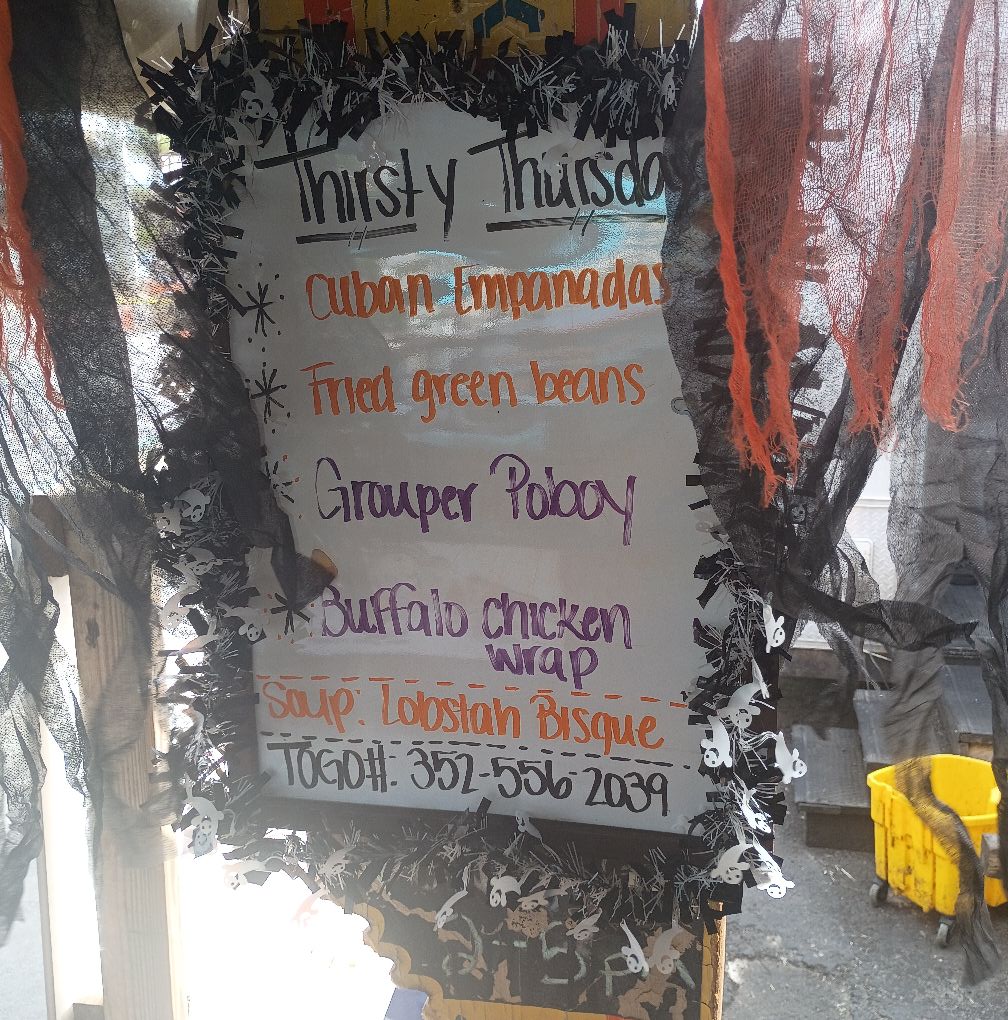 Thirsty Thursda
Cuban Empanadas
Fried green beans
Grouper Poboy
Buffalo chicken
wrap
Soup: Lobstah Bisque
TOGO#: 352-556-2039